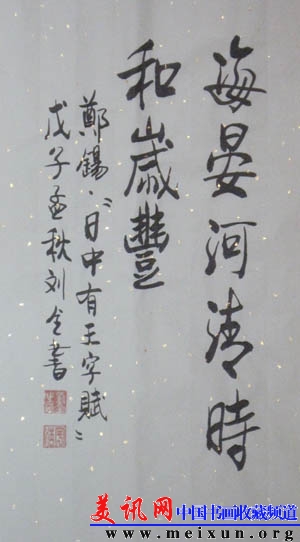 海晏河清時
和歲豐
鄭錫、“日中有王字賦”
戊子孟秋刘
書
美讯网 中国书画收藏频道
www.meixun.org